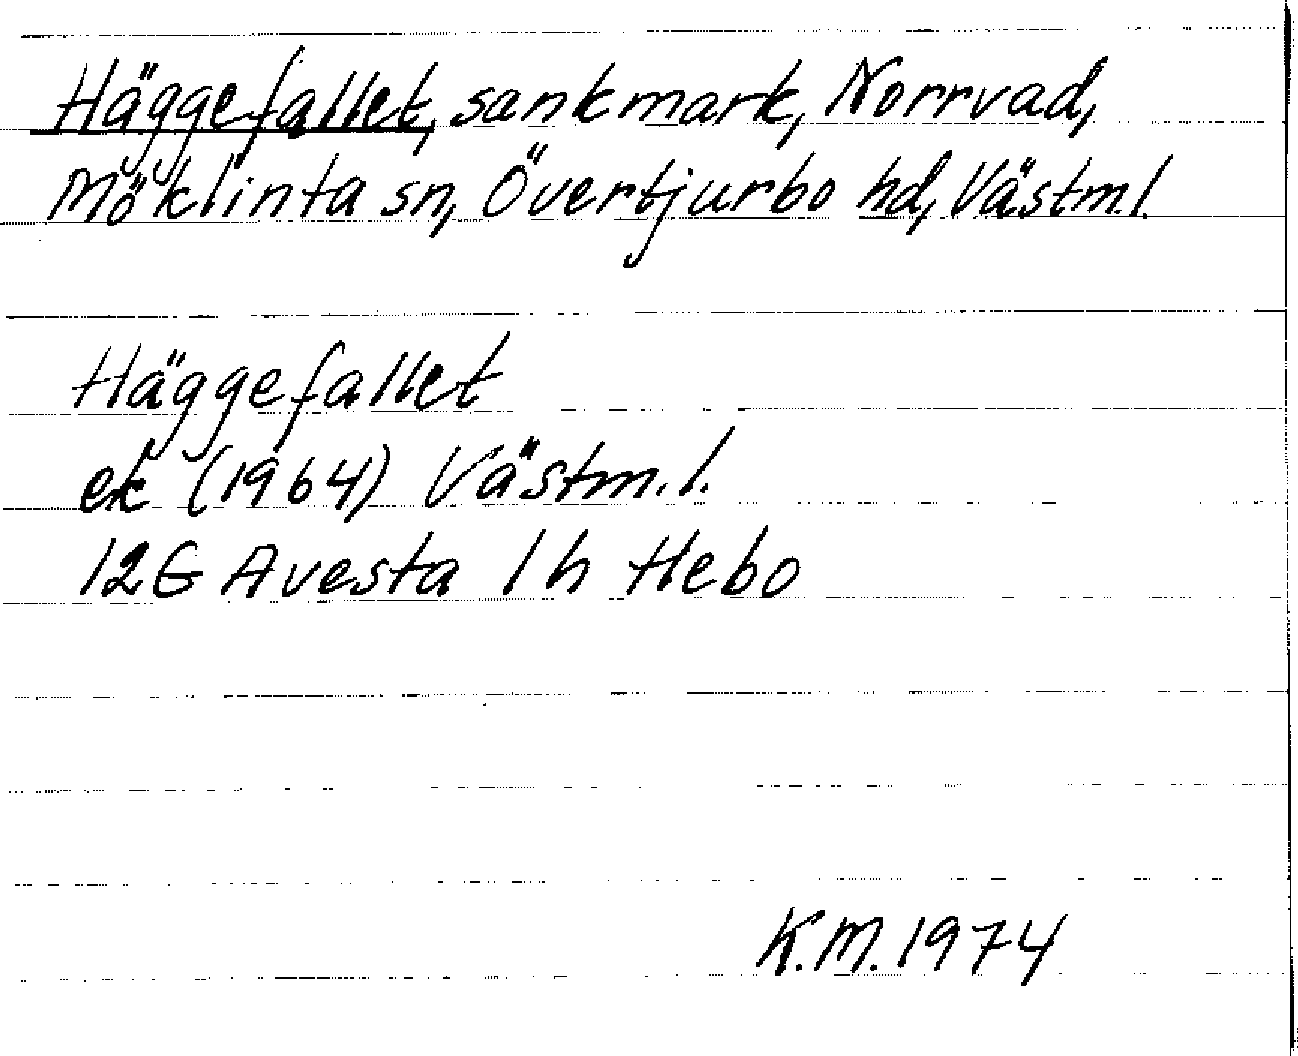 Häggefallet, sankmark, Norrvad,
Möklinta sn, Övertjurbo hd, Västm.l.
Häggefallet
ek (1964) Västm.l.
12G Avesta 1h Hebo
K.M. 1974